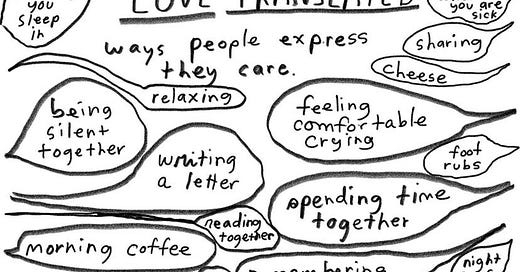 you
sleep
in
LOVE TRANSLATED
you are
sick
ways people express
they care.
sharing
cheese
relaxing
being
silent
together
feeling
comfortable
crying
writing
a letter
foot
rubs
spending time
together
reading
together
morning coffee
remembering
night